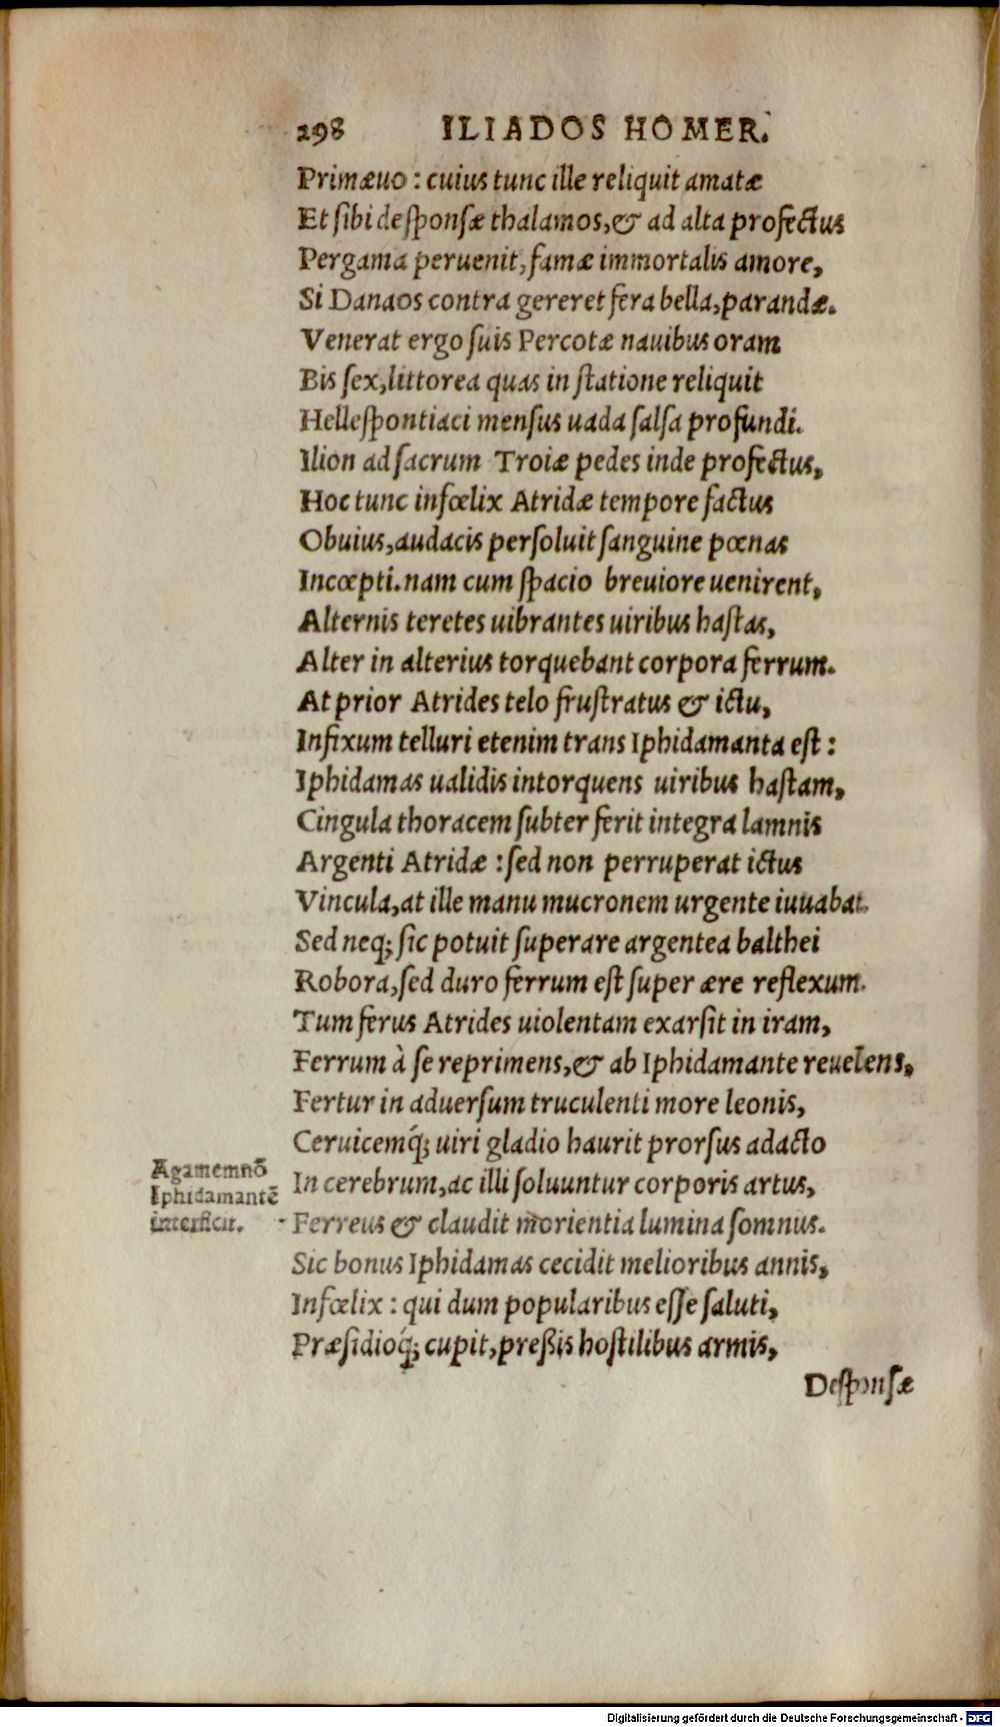 298 ILIADOS HOMER.
Primæuo : cuius tunc ille reliquit amatæ
Et sibi desponsæ thalamos, & ad alta profectus
Pergama peruenit, famæ immortalis amore,
Si Danaos contra gereret fera bella, parandæ.
Venerat ergo suis Percotæ nauibus oram
Bis sex, littorea quas in statione reliquit
Hellespontiaci mensus uada salsa profundi.
Ilion ad sacrum Troiæ pedes inde profectus,
Hoc tunc infœlix Atridæ tempore factus
Obuius, audacis persoluit sanguine pœnas
Incœpti. nam cum spacio breuiore uenirent,
Alternis teretes uibrantes uiribus hastas,
Alter in alterius torquebant corpora ferrum.
At prior Atrides telo frustratus & ictu,
Infixum telluri etenim trans Iphidamanta est :
Iphidamas ualidis intorquens uiribus hastam,
Cingula thoracem subter ferit integra lamnis
Argenti Atridæ : sed non perruperat ictus
Vincula, at ille manu mucronem urgente iuuabat.
Sed neq; sic potuit superare argentea balthei
Robora, sed duro ferrum est super ære reflexum.
Tum ferus Atrides uiolentam exarsit in iram,
Ferrum à se reprimens, & ab Iphidamante reuelens,
Fertur in aduersum truculenti more leonis,
Ceruicemq́; uiri gladio haurit prorsus adacto
In cerebrum, ac illi soluuntur corporis artus,
Ferreus & claudit morientia lumina somnus.
Sic bonus Iphidamas cecidit melioribus annis,
Infœlix : qui dum popularibus esse saluti,
Præsidioq́; cupit, preßis hostilibus armis,
Desponsæ
Agamemnō
Iphidamantē
interficit.
Digitalisierung gefördert durch die Deutsche Forschungsgemeinschaft - DFG